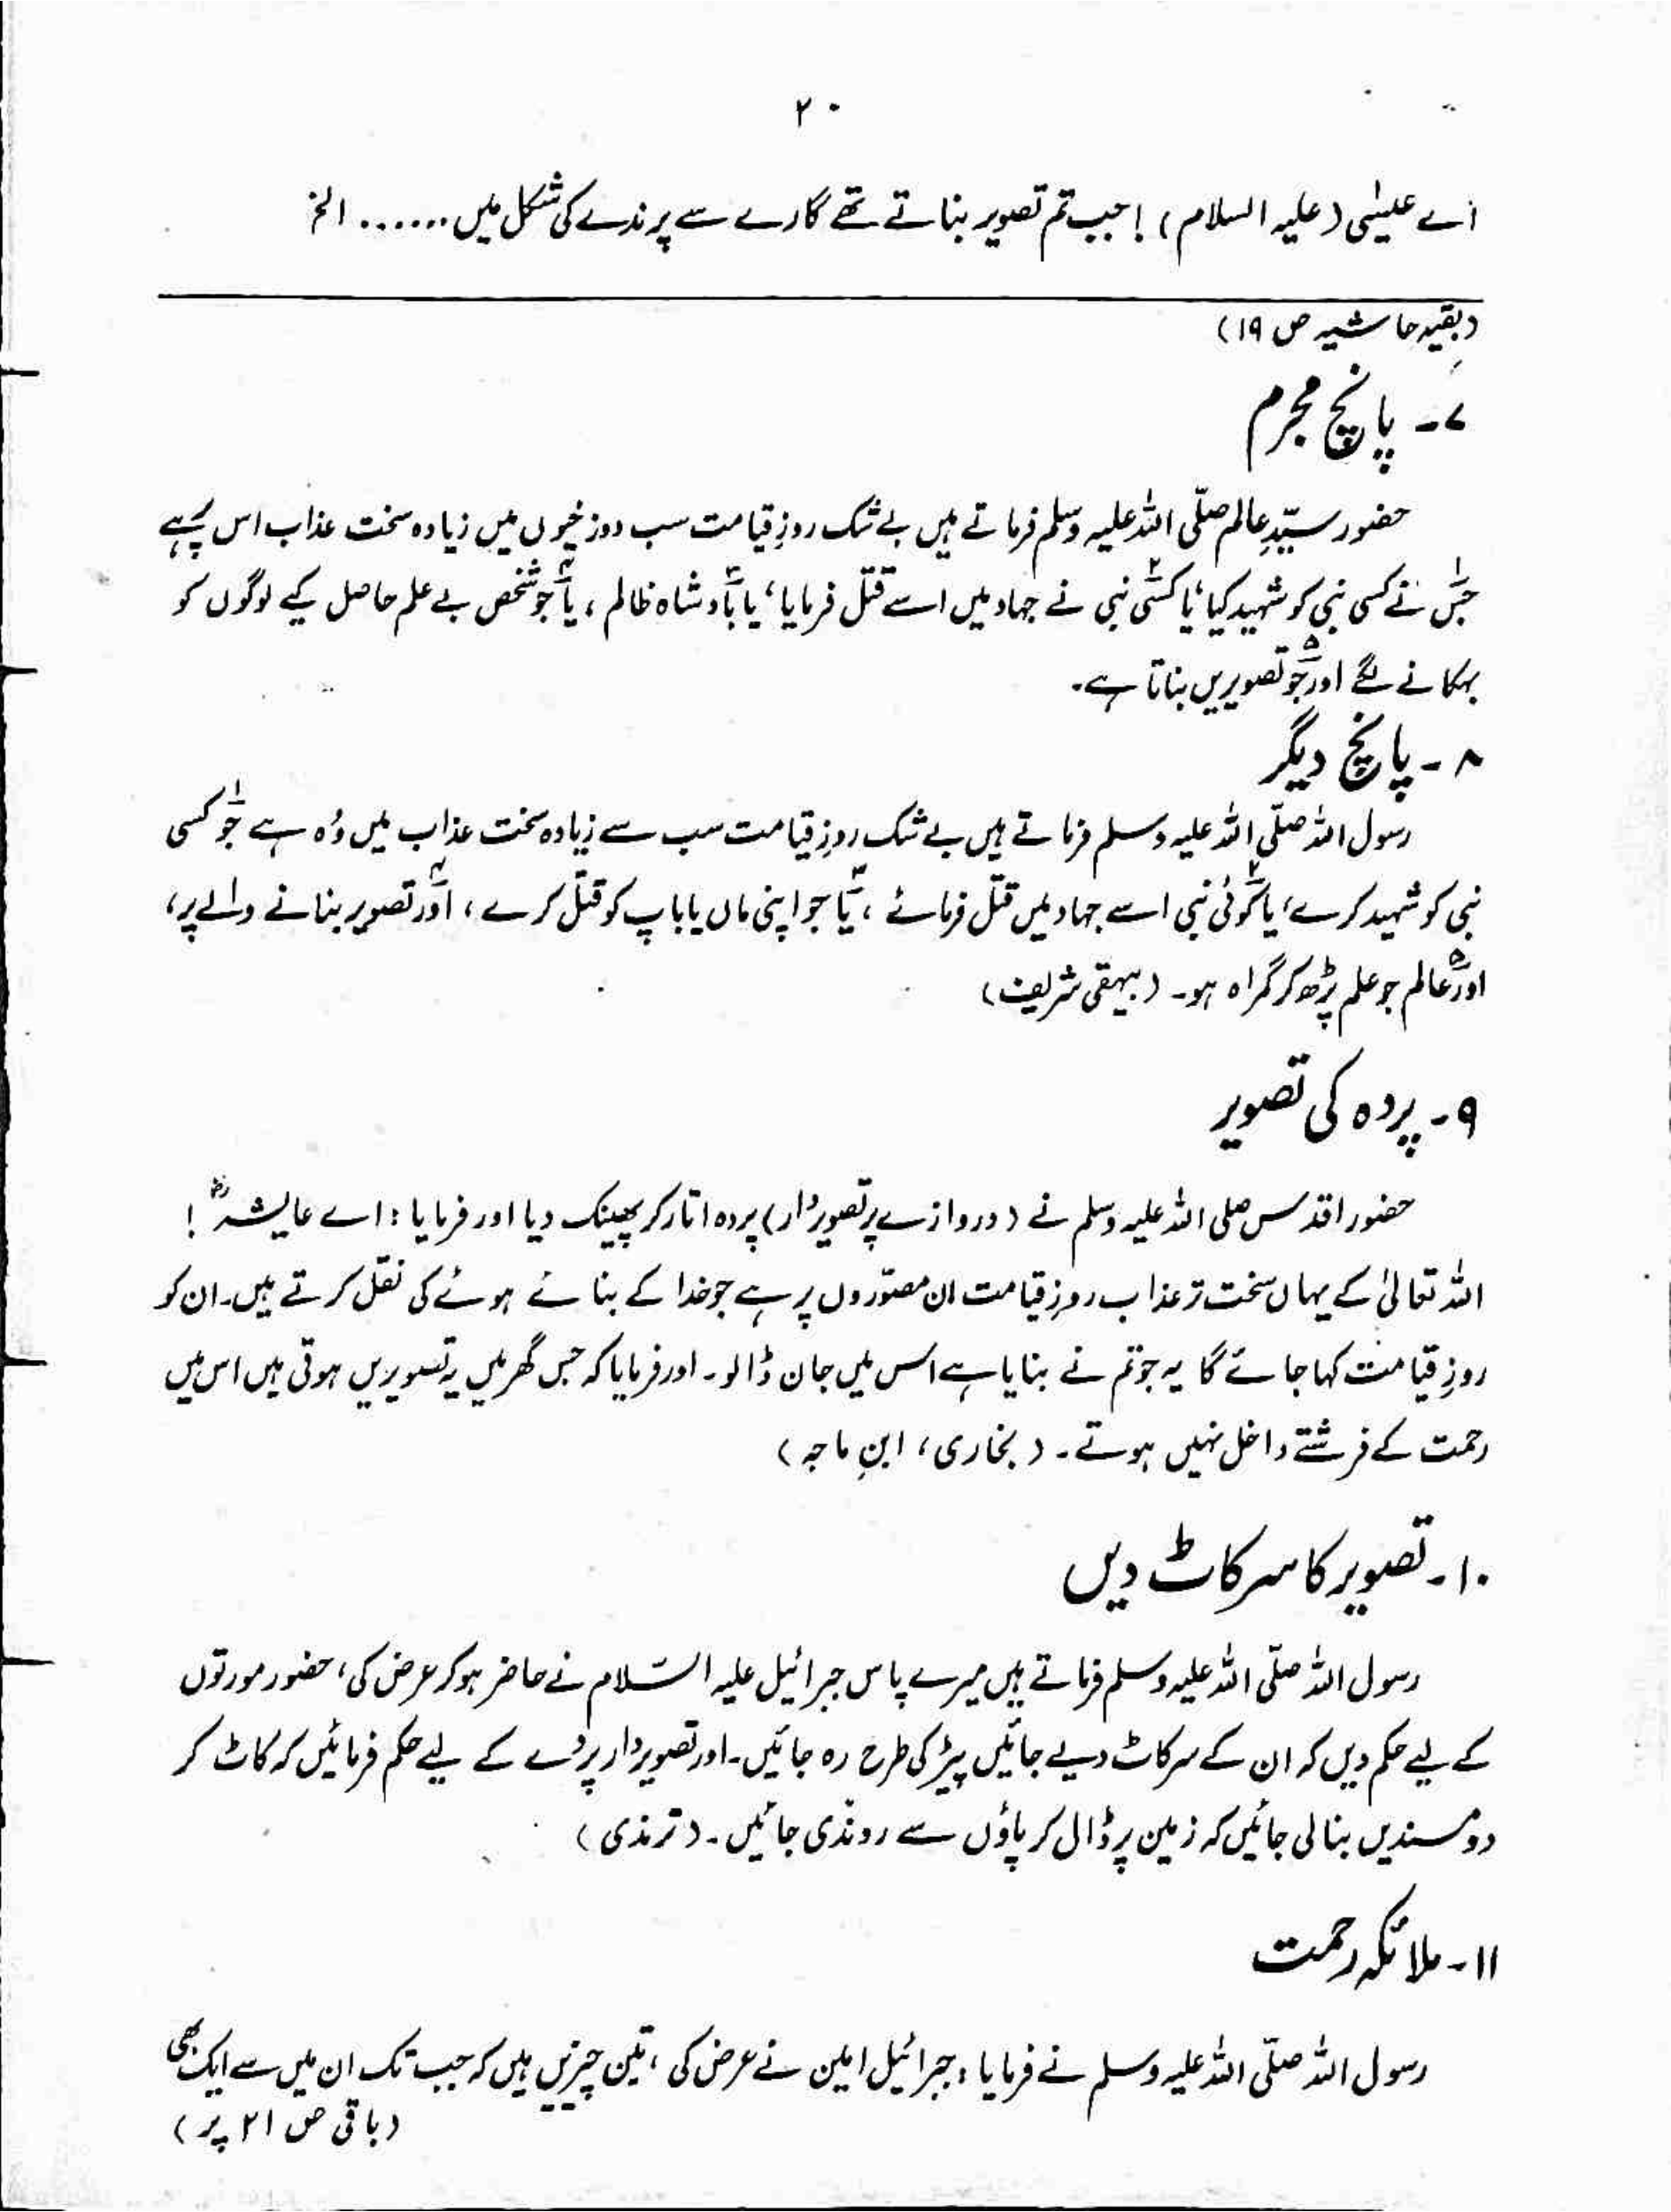 ۲۰
اے عیسٰی (علیہ السلام) ! جب تم تصویر بناتے تھے گارے سے پرندے کی شکل میں ...... الخ
(بقیہ حاشیہ ص ۱۹)
۷۔ پانچ مجرم
حضور سیّدِ عالم صلّی اللہ علیہ وسلم فرماتے ہیں بے شک روزِ قیامت سب دوزخیوں میں زیادہ سخت عذاب اس پر ہے
جس۱ نے کسی نبی کو شہید کیا، یا کسی۲ نبی نے جہاد میں اسے قتل فرمایا، یا بادشاہ۳ ظالم ، یا جو۴ شخص بے علم حاصل کیے لوگوں کو
بہکانے لگے اور جو۵ تصویریں بناتا ہے۔
۸ - پانچ دیگر
رسول اللہ صلّی اللہ علیہ وسلم فرماتے ہیں بے شک روزِ قیامت سب سے زیادہ سخت عذاب میں وُہ ہے جو۱ کسی
نبی کو شہید کرے، یا کوئی۲ نبی اسے جہاد میں قتل فرمائے ، یا۳ جو اپنی ماں یا باپ کو قتل کرے ، اور۴ تصویر بنانے والے پر،
اور۵ عالم جو علم پڑھ کر گمراہ ہو۔ (بیہقی شریف)
۹ - پردہ کی تصویر
حضور اقدس صلی اللہ علیہ وسلم نے (دروازے پر تصویردار) پردہ اتار کر پھینک دیا اور فرمایا : اے عایشہؓ !
اللہ تعالیٰ کے یہاں سخت تر عذاب روزِ قیامت ان مصوّروں پر ہے جو خدا کے بنائے ہوئے کی نقل کرتے ہیں۔ ان کو
روزِ قیامت کہا جائے گا یہ جو تم نے بنایا ہے اس میں جان ڈالو۔ اور فرمایا کہ جس گھر میں یہ تصویریں ہوتی ہیں اس میں
رحمت کے فرشتے داخل نہیں ہوتے۔ (بخاری ، ابنِ ماجہ)
۱۰ - تصویر کا سر کاٹ دیں
رسول اللہ صلّی اللہ علیہ وسلم فرماتے ہیں میرے پاس جبرائیل علیہ السّلام نے حاضر ہو کر عرض کی ، حضور مورتوں
کے لیے حکم دیں کہ ان کے سر کاٹ دیے جائیں پیڑ کی طرح رہ جائیں۔ اور تصویردار پردے کے لیے حکم فرمائیں کہ کاٹ کر
دو مسندیں بنا لی جائیں کہ زمین پر ڈال کر پاؤں سے روندی جائیں۔ (ترمذی)
۱۱ - ملائکہ رحمت
رسول اللہ صلّی اللہ علیہ وسلم نے فرمایا : جبرائیل امین نے عرض کی ، تین چیزیں ہیں کہ جب تک ان میں سے ایک بھی
(باقی ص ۲۱ پر)